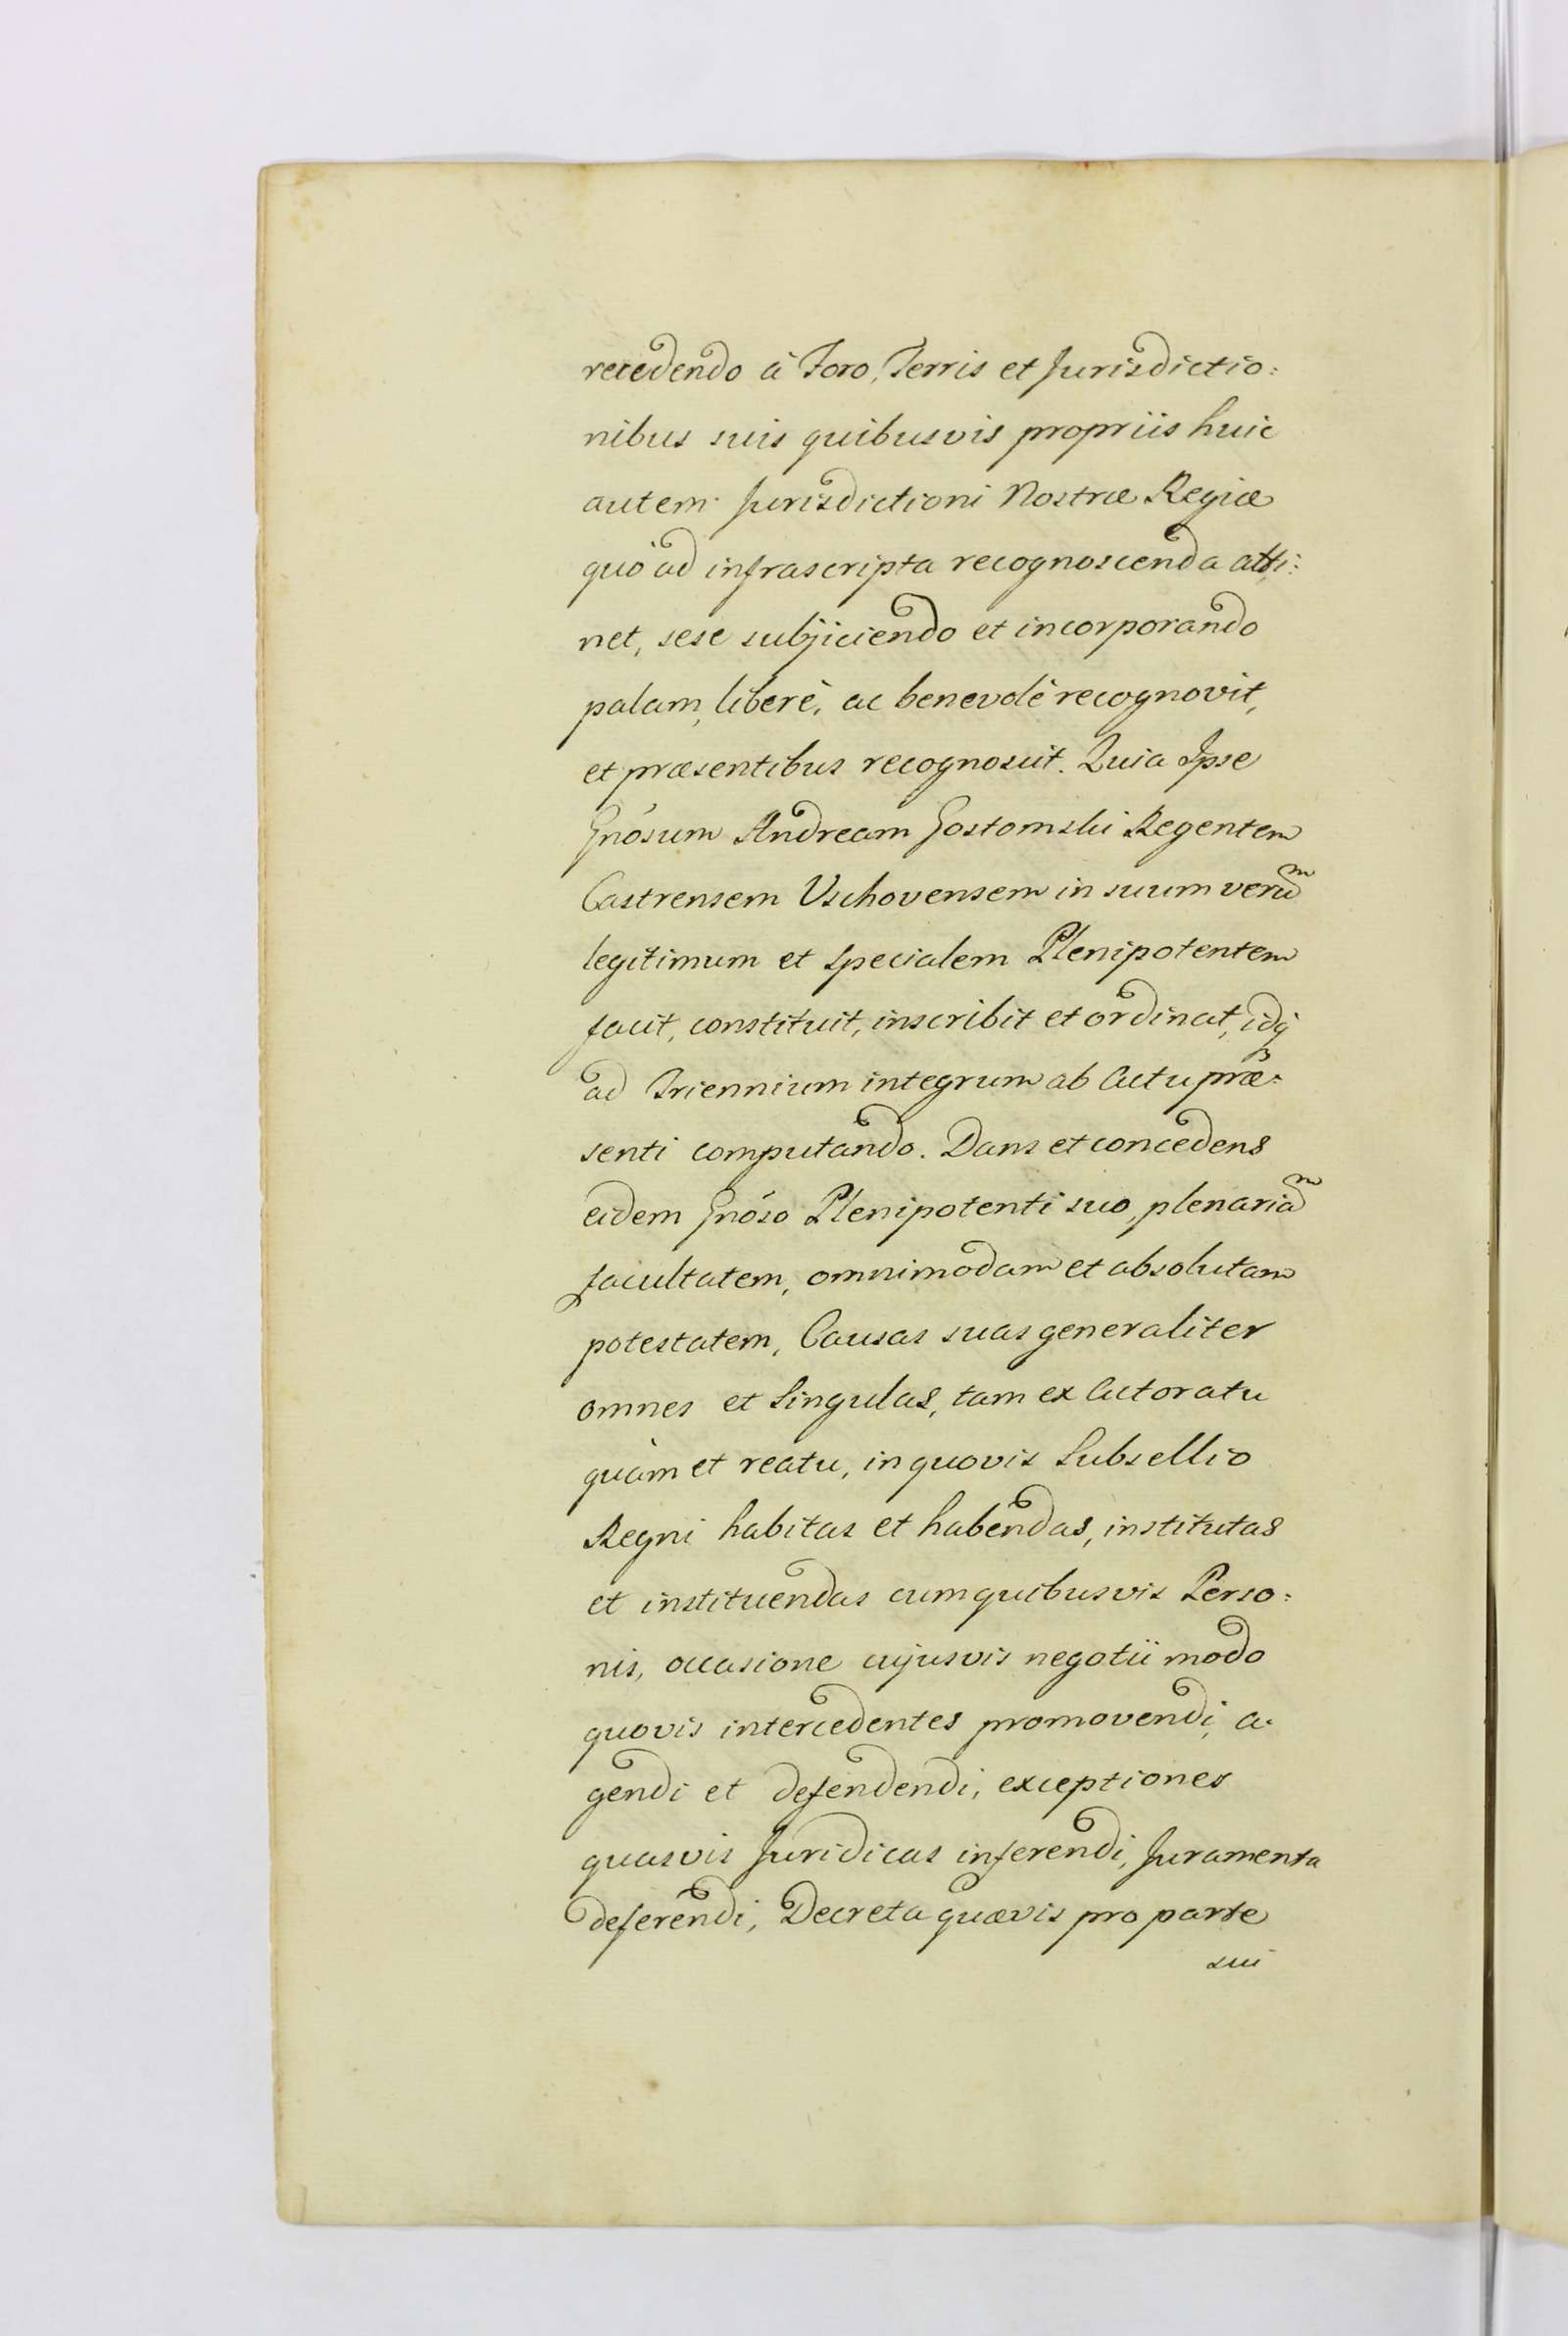 recedendo à Foro, Terris et Jurisdictio:
nibus suis quibusvis propriis huic
autem Jurisdictioni Nostræ Regiæ
quò ad infrascripta recognoscenda atti:
net, sese subjiciendo et incorporando
palam, liberè, ac benevolè recognovit,
et præsentibus recognoscit. Quia Ipse
Gnósum Andream Gostomski Regentem
Castrensem Vschovensem in suum verũ
legitimum et specialem Plenipotentem
facit, constituit, inscribit et ordinat, idq́
ad Triennium integrum ab Actu præ:
senti computando. Dans et concedens
eidem Gnóso Plenipotenti suo, plenariã
facultatem, omnimodam et absolutam
potestatem, Causas suas generaliter
omnes et Singulas, tam ex Actoratu
quàm et reatu, in quovis Subsellio
Regni habitas et habendas, institutas
et instituendas cum quibusvis Perso:
nis, occasione cujusvis negotii modo
quovis intercedentes promovendi, a:
gendi et defendendi, exceptiones
quasvis Juridicas inferendi, Juramenta
deferendi, Decreta quævis pro parte
sui